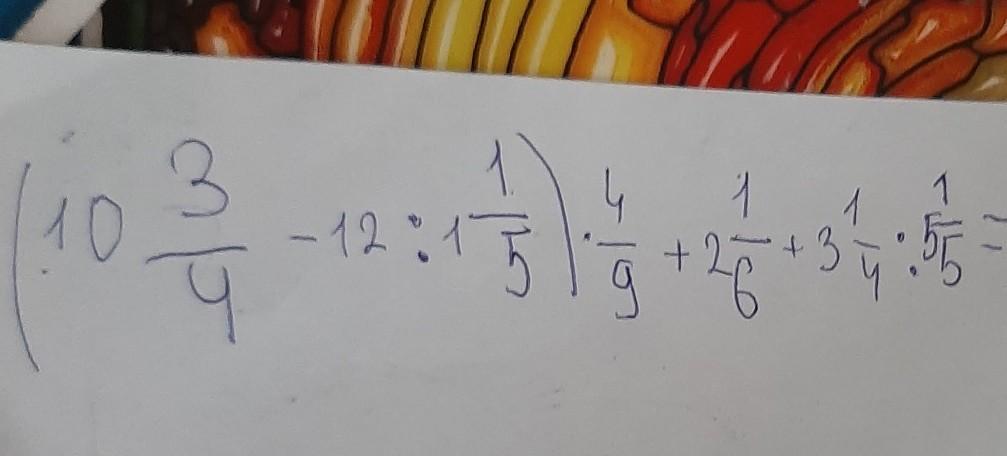 (10 3/4 - 12 : 1 1/5) · 4/9 + 2 1/6 + 3 1/4 : 5 1/5 =